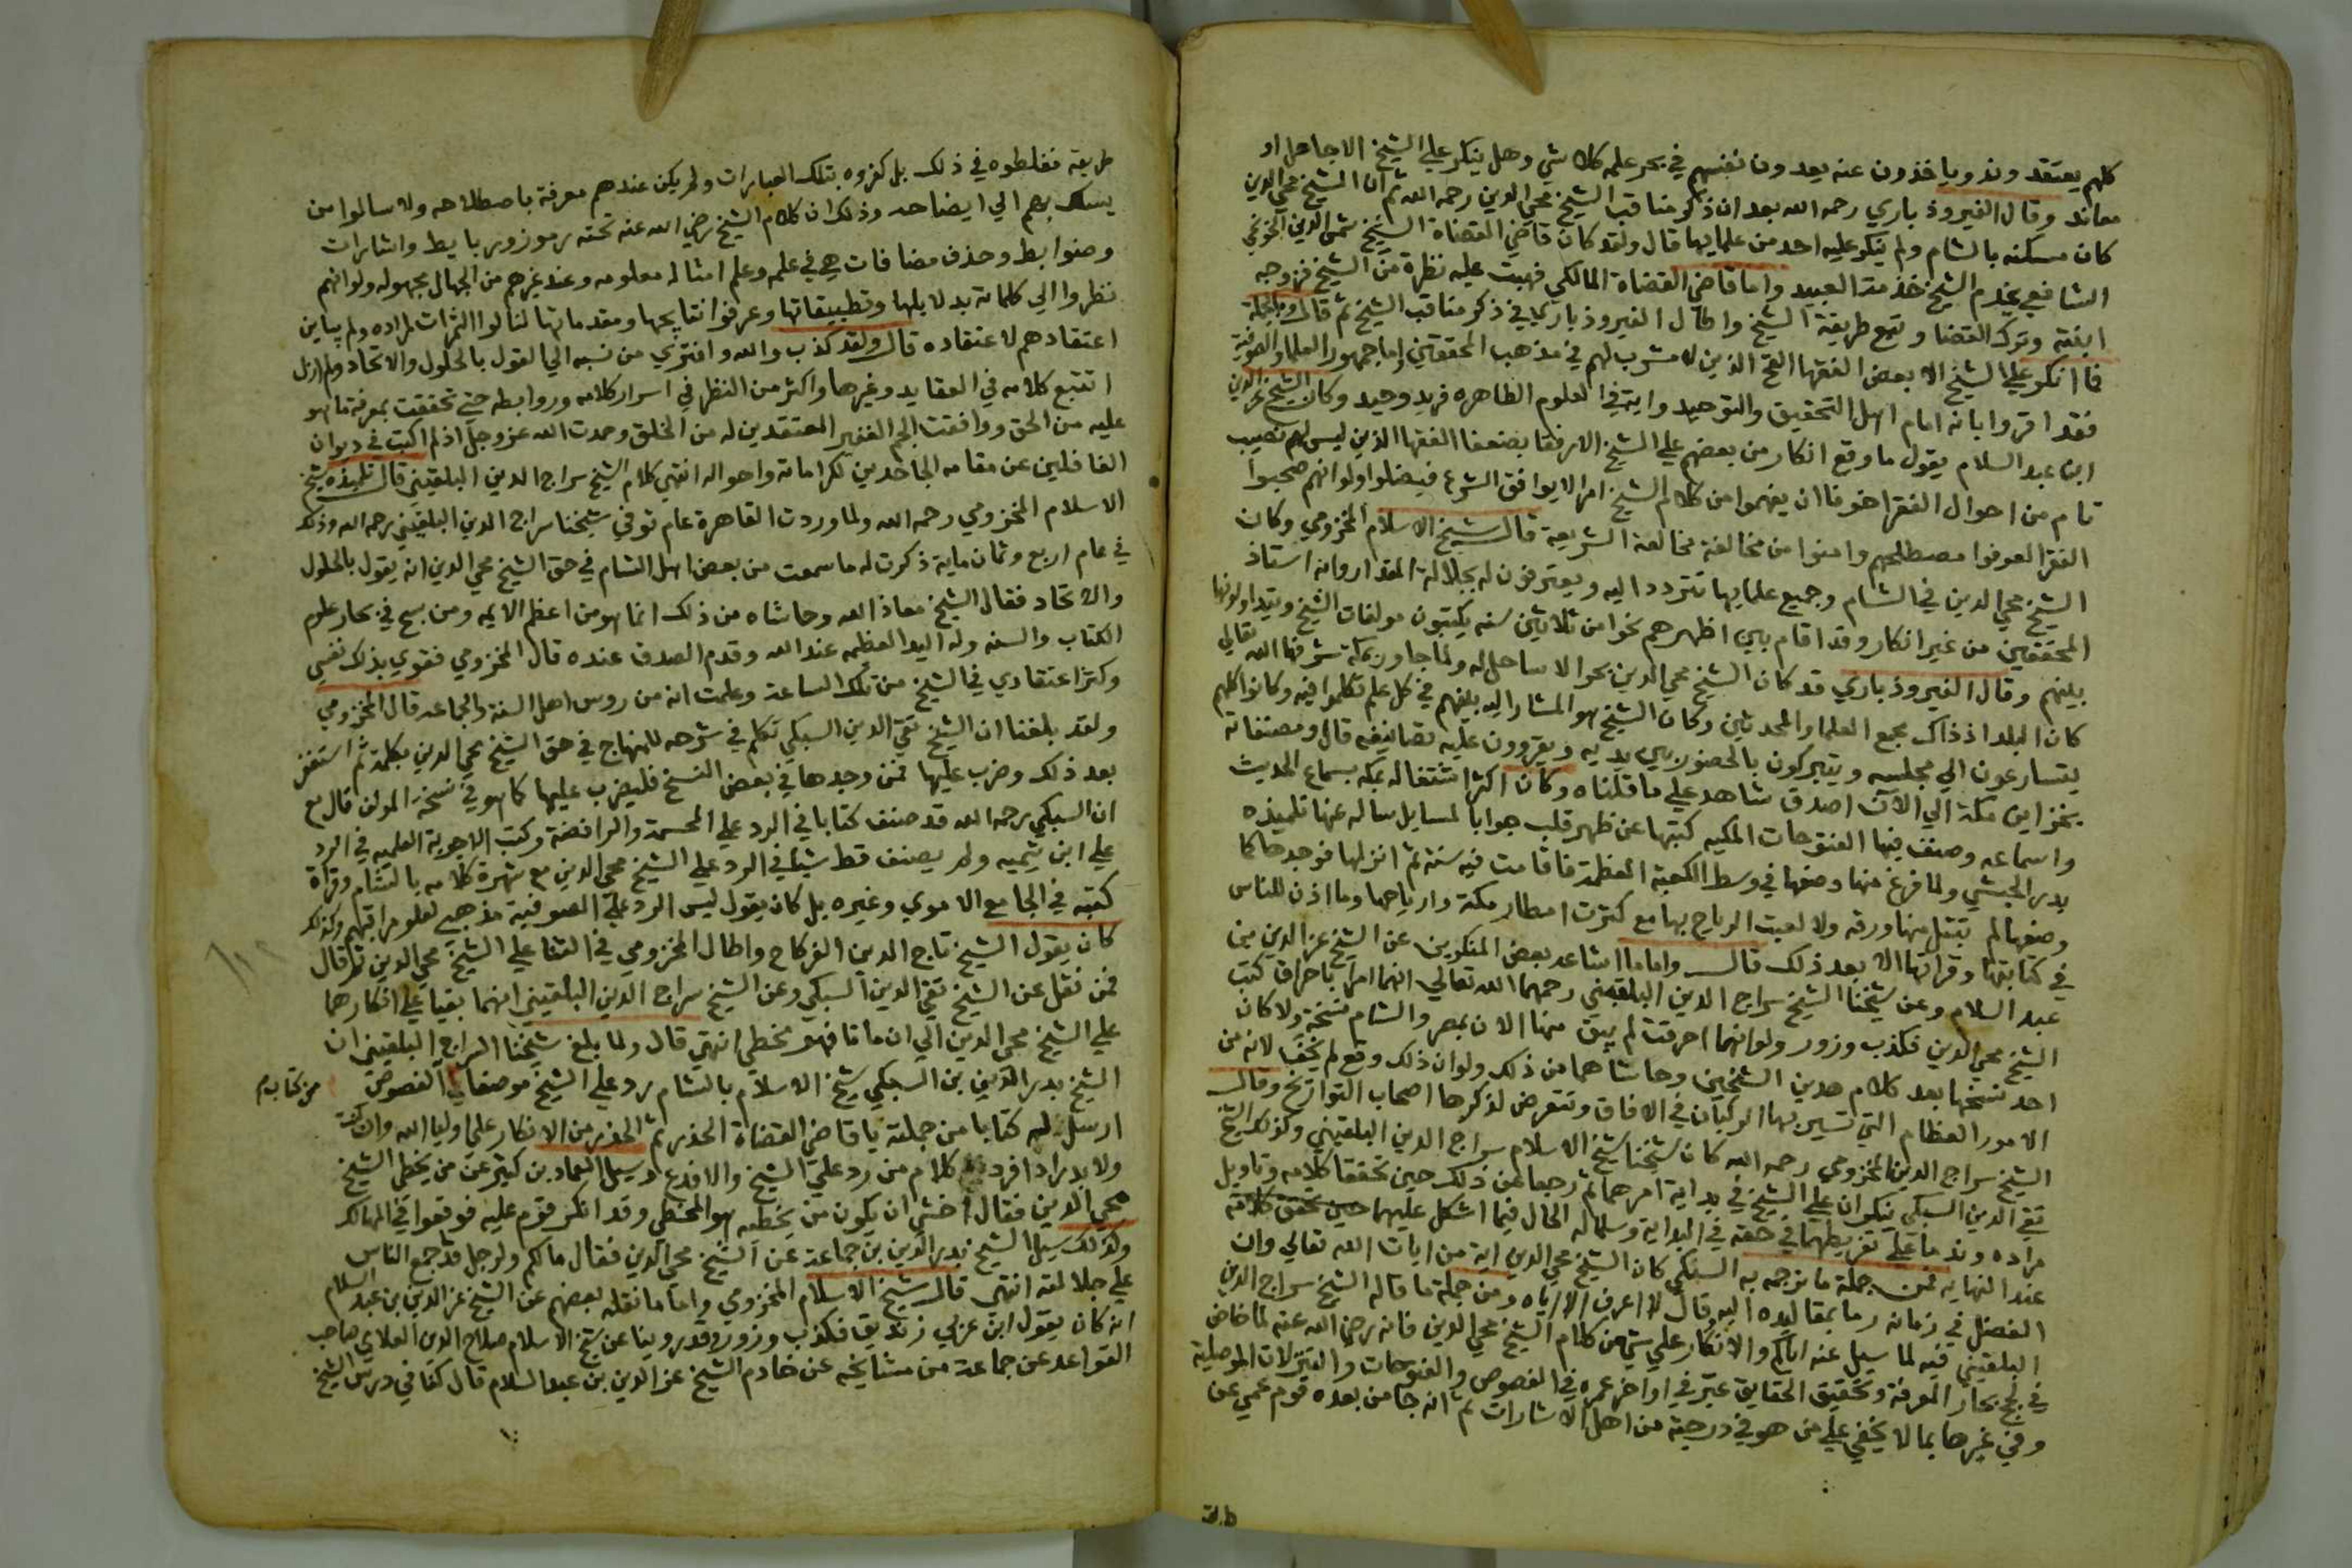 كلهم يعتقدونه وياخذون عنه يعدون نفسهم في بحر علمه كلا شي وهل ينكر علي الشيخ الا جاهل او
معاند وقال الفيروذبادي رحمه الله بعد ان ذكر مناقب الشيخ محي الدين رحمه الله ثم ان الشيخ محي الدين
كان مسكنه بالشام ولم ينكر عليه احد من علمايها قال ولقد كان قاضي القضاة الشيخ شمس الدين الخونجي
الشافعي يخدم الشيخ خدمة العبيد واما قاضي القضاة المالكي فهبت عليه نظرة من الشيخ فزوجه
ابنته وترك القضا وتبع طريقة الشيخ واطال الفيروذبادي في ذكر مناقب الشيخ ثم قال وبالجملة
فما انكر علي الشيخ الا بعض الفقها القح الذين لا مشرب لهم في مذهب المحققين واما جمهور العلما والصوفية
فقد اقروا بانه امام اهل التحقيق والتوحيد وانه في العلوم الظاهره فريد وحيد وكان الشيخ عز الدين
ابن عبد السلام يقول ما وقع انكار من بعضهم علي الشيخ الا رفقا بضعفا الفقها الذين ليس لهم نصيب
تام من احوال الفقرا خوفا ان يفهموا من كلام الشيخ امرا لا يوافق الشرع فيضلوا ولو انهم صحبوا
الفقرا لعرفوا مصطلحهم وامنوا من مخالفة الشريعة قال شيخ الاسلام المخزومي وكان
الشيخ محي الدين في الشام وجميع علمايها تتردد اليه ويعترفون له بجلالة المقدار وانه استاذ
المحققين من غير انكار وقد اقام بين اظهرهم نحوا من ثلاثين سنه يكتبون مولفات الشيخ ويتداولونها
بينهم وقال الفيروذبادي قد كان الشيخ محي الدين بحرا لا ساحل له ولما جاور بمكة شرفها الله تعالي
كان البلد اذ ذاك مجمع العلما والمحدثين وكان الشيخ هو المشار اليه بينهم في كل علم تكلموا فيه وكانوا كلهم
يتسارعون الي مجلسه ويتبركون بالحضور بين يديه ويقرون عليه تصانيفه قال ومصنفاته
بخزاين مكة الي الان اصدق شاهد علي ما قلناه وكان اكثر اشتغاله بمكه بسماع الحديث
واسماعه وصنف فيها الفتوحات المكيه كتبها عن ظهر قلب جوابا لمسايل ساله عنها تلميذه
بدر الحبشي ولما فرغ منها وضعها في وسط الكعبة المعظمة فاقامت فيه سنة ثم انزلها فوجدها كما
وضعها لم تبتل منها ورقه ولا لعبت الرياح بها مع كثرت امطار مكة وارياحها وما اذن للناس
في كتابتها وقراتها الا بعد ذلك قال واما ما اشاعه بعض المنكرين عن الشيخ عز الدين بن
عبد السلام وعن شيخنا الشيخ سراج الدين البلقيني رحمهما الله تعالي انهما امرا باحراق كتب
الشيخ محي الدين فكذب وزور ولو انهما احرقت لم يبق منها الان بمصر والشام نسخة ولا كان
احد نسخها بعد كلام هذين الشيخين وحاشاهما من ذلك ولو ان ذلك وقع لم يخف لانه من
الامور العظام التي تسير بها الركبان في الافاق وتتعرض لذكرها اصحاب التواريخ وقال
الشيخ سراج الدين المخزومي رحمه الله كان شيخنا شيخ الاسلام سراج الدين البلقيني وكذلك الشيخ
تقي الدين السبكي ينكران علي الشيخ في بداية امرهما ثم رجعا عن ذلك حين تحققا كلامه وتاويل
مراده وندما علي تفريطهما في حقه في البداية وسلما له الحال فيما اشكل عليهما حين تحقق كلامه
عند النهايه فمن جملة ما ترجمه به السبكي كان الشيخ محي الدين اية من ايات الله تعالي وان
الفضل في زمانه رما بمقاليده اليه وقال لا اعرف الا اياه ومن جملة ما قاله الشيخ سراج الدين
البلقيني فيه لما سيل عنه اياكم والانكار علي شي من كلام الشيخ محي الدين فانه رضي الله عنه لما خاض
في لجج بحار المعرفة وتحقيق الحقايق عبر في اواخر عمره في الفصوص والفتوحات والتنزلات الموصلية
وفي غيرها بما لا يخفي علي من هو في درجته من اهل الاشارات ثم انه جا من بعده قوم عمي عن
طريقته
طريقه فغلطوه في ذلك بل كفروه بتلك العبارات ولم يكن عندهم معرفة باصطلاحه ولا سالوا من
يسلك بهم الي ايضاحه وذلك ان كلام الشيخ رضي الله عنه تحته رموز وربايط واشارات
وضوابط وحذف مضافات هي في علمه وعلم امثاله معلومه وعند غيرهم من الجهال مجهوله ولو انهم
نظروا الي كلماته بدلايلها وتطبيقاتها وعرفوا نتايجها ومقدماتها لنالوا الثمرات المراده ولم يباين
اعتقادهم لاعتقاده قال ولقد كذب والله وافتري من نسبه الي القول بالحلول والاتحاد ولم ازل
اتتبع كلامه في العقايد وغيرها واكثر من النظر في اسرار كلامه وروابطه حتي تحققت بمعرفة ما هو
عليه من الحق ووافقت الجم الغفير المعتقدين له من الخلق وحمدت الله عز وجل اذ لم اكتب في ديوان
الغافلين عن مقامه الجاحدين لكراماته واحواله انتهي كلام الشيخ سراج الدين البلقيني قال تلميذه شيخ
الاسلام المخزومي رحمه الله ولما وردت القاهرة عام توفي شيخنا سراج الدين البلقيني رحمه الله وذلك
في عام اربع وثمان ماية ذكرت له ما سمعت من بعض اهل الشام في حق الشيخ محي الدين انه يقول بالحلول
والاتحاد فقال الشيخ معاذ الله وحاشاه من ذلك انما هو من اعظم الايمه ومن سبح في بحار علوم
الكتاب والسنه وله اليد العظيمه عند الله وقدم الصدق عنده قال المخزومي فقوي بذلك نفسي
وكثر اعتقادي في الشيخ من تلك الساعة وعلمت انه من روس اهل السنة والجماعه قال المخزومي
ولقد بلغنا ان الشيخ تقي الدين السبكي تكلم في شرحه للمنهاج في حق الشيخ محي الدين بكلمة ثم استغفر
بعد ذلك وضرب عليها فمن وجدها في بعض النسخ فليضرب عليها كما هو في نسخة المولف قال مع
ان السبكي رحمه الله قد صنف كتابا في الرد علي المجسمة والرافضة وكتب الاجوبة العلميه في الرد
علي ابن تيميه ولم يصنف قط شيا في الرد علي الشيخ محي الدين مع شهرة كلامه بالشام وقراة
كتبه في الجامع الاموي وغيره بل كان يقول ليس الرد علي الصوفية مذهبي لعلو مراقبهم وكذلك
كان يقول الشيخ تاج الدين الفركاح واطال المخزومي في الثنا علي الشيخ محي الدين ثم قال
فمن نقل عن الشيخ تقي الدين السبكي وعن الشيخ سراج الدين البلقيني انهما بقيا علي انكارهما
علي الشيخ محي الدين الي ان ماتا فهو مخطي انتهي قال ولما بلغ شيخنا السراج البلقيني ان
الشيخ بدر الدين بن السبكي شيخ الاسلام بالشام رد علي الشيخ موضعا في الفصوص
من كتابه
ارسل له كتابا من جملته يا قاضي القضاة الحذر ثم الحذر من الانكار علي اوليا الله وان كنت
ولا بد رادا فرد كلام من رد علي الشيخ والا فدع وسيل العماد بن كثير عن من يخطي الشيخ
محي الدين فقال اخشي ان يكون من يخطيه هو المخطي وقد انكر قوم عليه فوقعوا في المهالك
وكذلك سيل الشيخ بدر الدين بن جماعة عن الشيخ محي الدين فقال ما لكم ولرجل قد اجمع الناس
علي جلالته انتهي قال شيخ الاسلام المخزومي واما ما نقله بعضهم عن الشيخ عز الدين بن عبد السلام
انه كان يقول ابن عربي زنديق فكذب وزور فقد روينا عن شيخ الاسلام صلاح الدين العلاي صاحب
القواعد عن جماعة من مشايخه عن خادم الشيخ عز الدين بن عبد السلام قال كنا في درس الشيخ